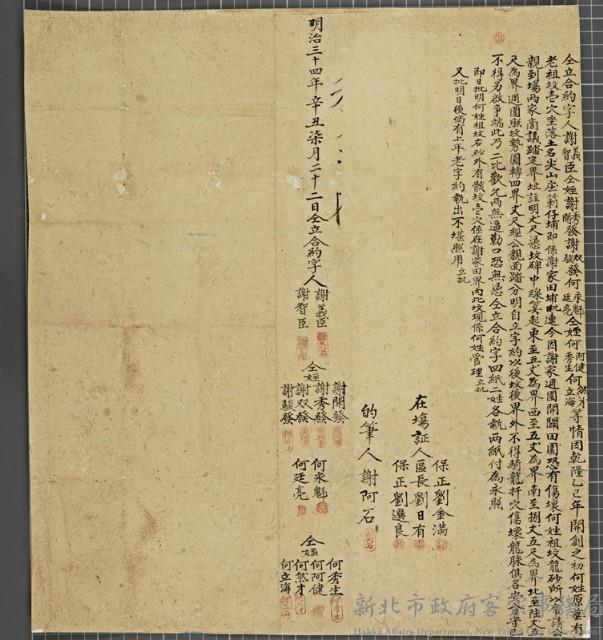 仝立合約字人謝義臣智臣仝姪謝秀發開發謝双發發何永魁廷亮仝姪何阿健秀生何然才立海等情因乾隆乙巳年開創之初何姓原葬有
老祖坟壱穴坐落土名尖山崖莿仔埔即係謝家田埔毗連今因謝家週圍開闢田園恐有傷壞何姓祖坟龍砂所以請公
親到塲兩家商議踏定界址註明丈尺憑坟碑中線筭起東至五丈為界西至五丈為界南至捌丈五尺為界北至陸丈五
尺為界週圍照坟勢圓轉四界丈尺經公親面踏分明自立字約以後坟後界外不得騎龍扦穴傷壞龍脉俱各安分守己
不得另啟爭端此乃二比歡允兩無逼勒口恐無憑仝立合約字四紙二姓各執兩紙付為永照
即日批明何姓祖坟右砂外有骸坟壱穴係在謝家田界內此坟現係何姓管理立批
又批明日後倘有上年老字約執出不堪照用立批
在塲証人
保正劉金滿
區長劉日有
保正劉邊良
的筆人謝阿石
明治三十四年辛丑柒月二十二日仝立合約字人
謝義臣
謝智臣
仝姪
謝開發
謝秀發
謝双發
謝駿發
何永魁
何廷亮
仝姪
何秀生
何阿健
何然才
何立海
新北市政府客家事務局
Hakka Affairs Department, New Taipei City Government